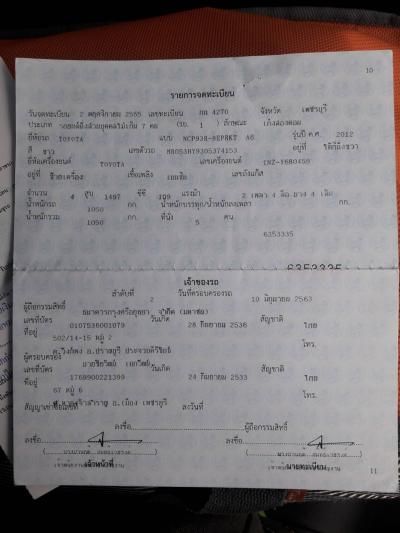 10
รายการจดทะเบียน
วันจดทะเบียน 2 พฤศจิกายน 2555 เลขทะเบียน กม 4270 จังหวัด เพชรบุรี
ประเภท รถยนต์นั่งส่วนบุคคลไม่เกิน 7 คน (รย. 1 ) ลักษณะ เก๋งสองตอน
ยี่ห้อรถ TOYOTA แบบ NCP93R-BEPRKT A6 รุ่นปี ค.ศ. 2012
สี ขาว เลขตัวรถ MR053HY9305374153 อยู่ที่
ยี่ห้อเครื่องยนต์ TOYOTA เลขเครื่องยนต์ 1NZ-Y680458
อยู่ที่ เชื้อเพลิง เบนซิน เลขถังแก๊ส
จำนวน 4 สูบ 1497 ซีซี 109 แรงม้า 2 เพลา 4 ล้อ ยาง 4 เส้น
น้ำหนักรถ 1050 กก. น้ำหนักบรรทุก/น้ำหนักลงเพลา กก.
น้ำหนักรวม 1050 กก. ที่นั่ง 5 คน
6353335
6353335
เจ้าของรถ
ลำดับที่ 2 วันที่ครอบครองรถ 10 มิถุนายน 2563
ผู้ถือกรรมสิทธิ์ ธนาคารกรุงศรีอยุธยา จำกัด (มหาชน)
เลขที่บัตร 0107536001079 วันเกิด 28 กันยายน 2536 สัญชาติ ไทย
ที่อยู่ 502/14-15 หมู่ 2 โทร.
ต.วังก์พง อ.ปราณบุรี ประจวบคีรีขันธ์
ผู้ครอบครอง
เลขที่บัตร 1769900221399 วันเกิด 24 กันยายน 2533 สัญชาติ ไทย
ที่อยู่ 67 หมู่ 6 โทร.
อ.เมือง เพชรบุรี
สัญญาเช่าซื้อเลขที่ ลงวันที่
ลงชื่อ ผู้ถือกรรมสิทธิ์
ลงชื่อ ลงชื่อ
เจ้าหน้าที่ นายทะเบียน
11